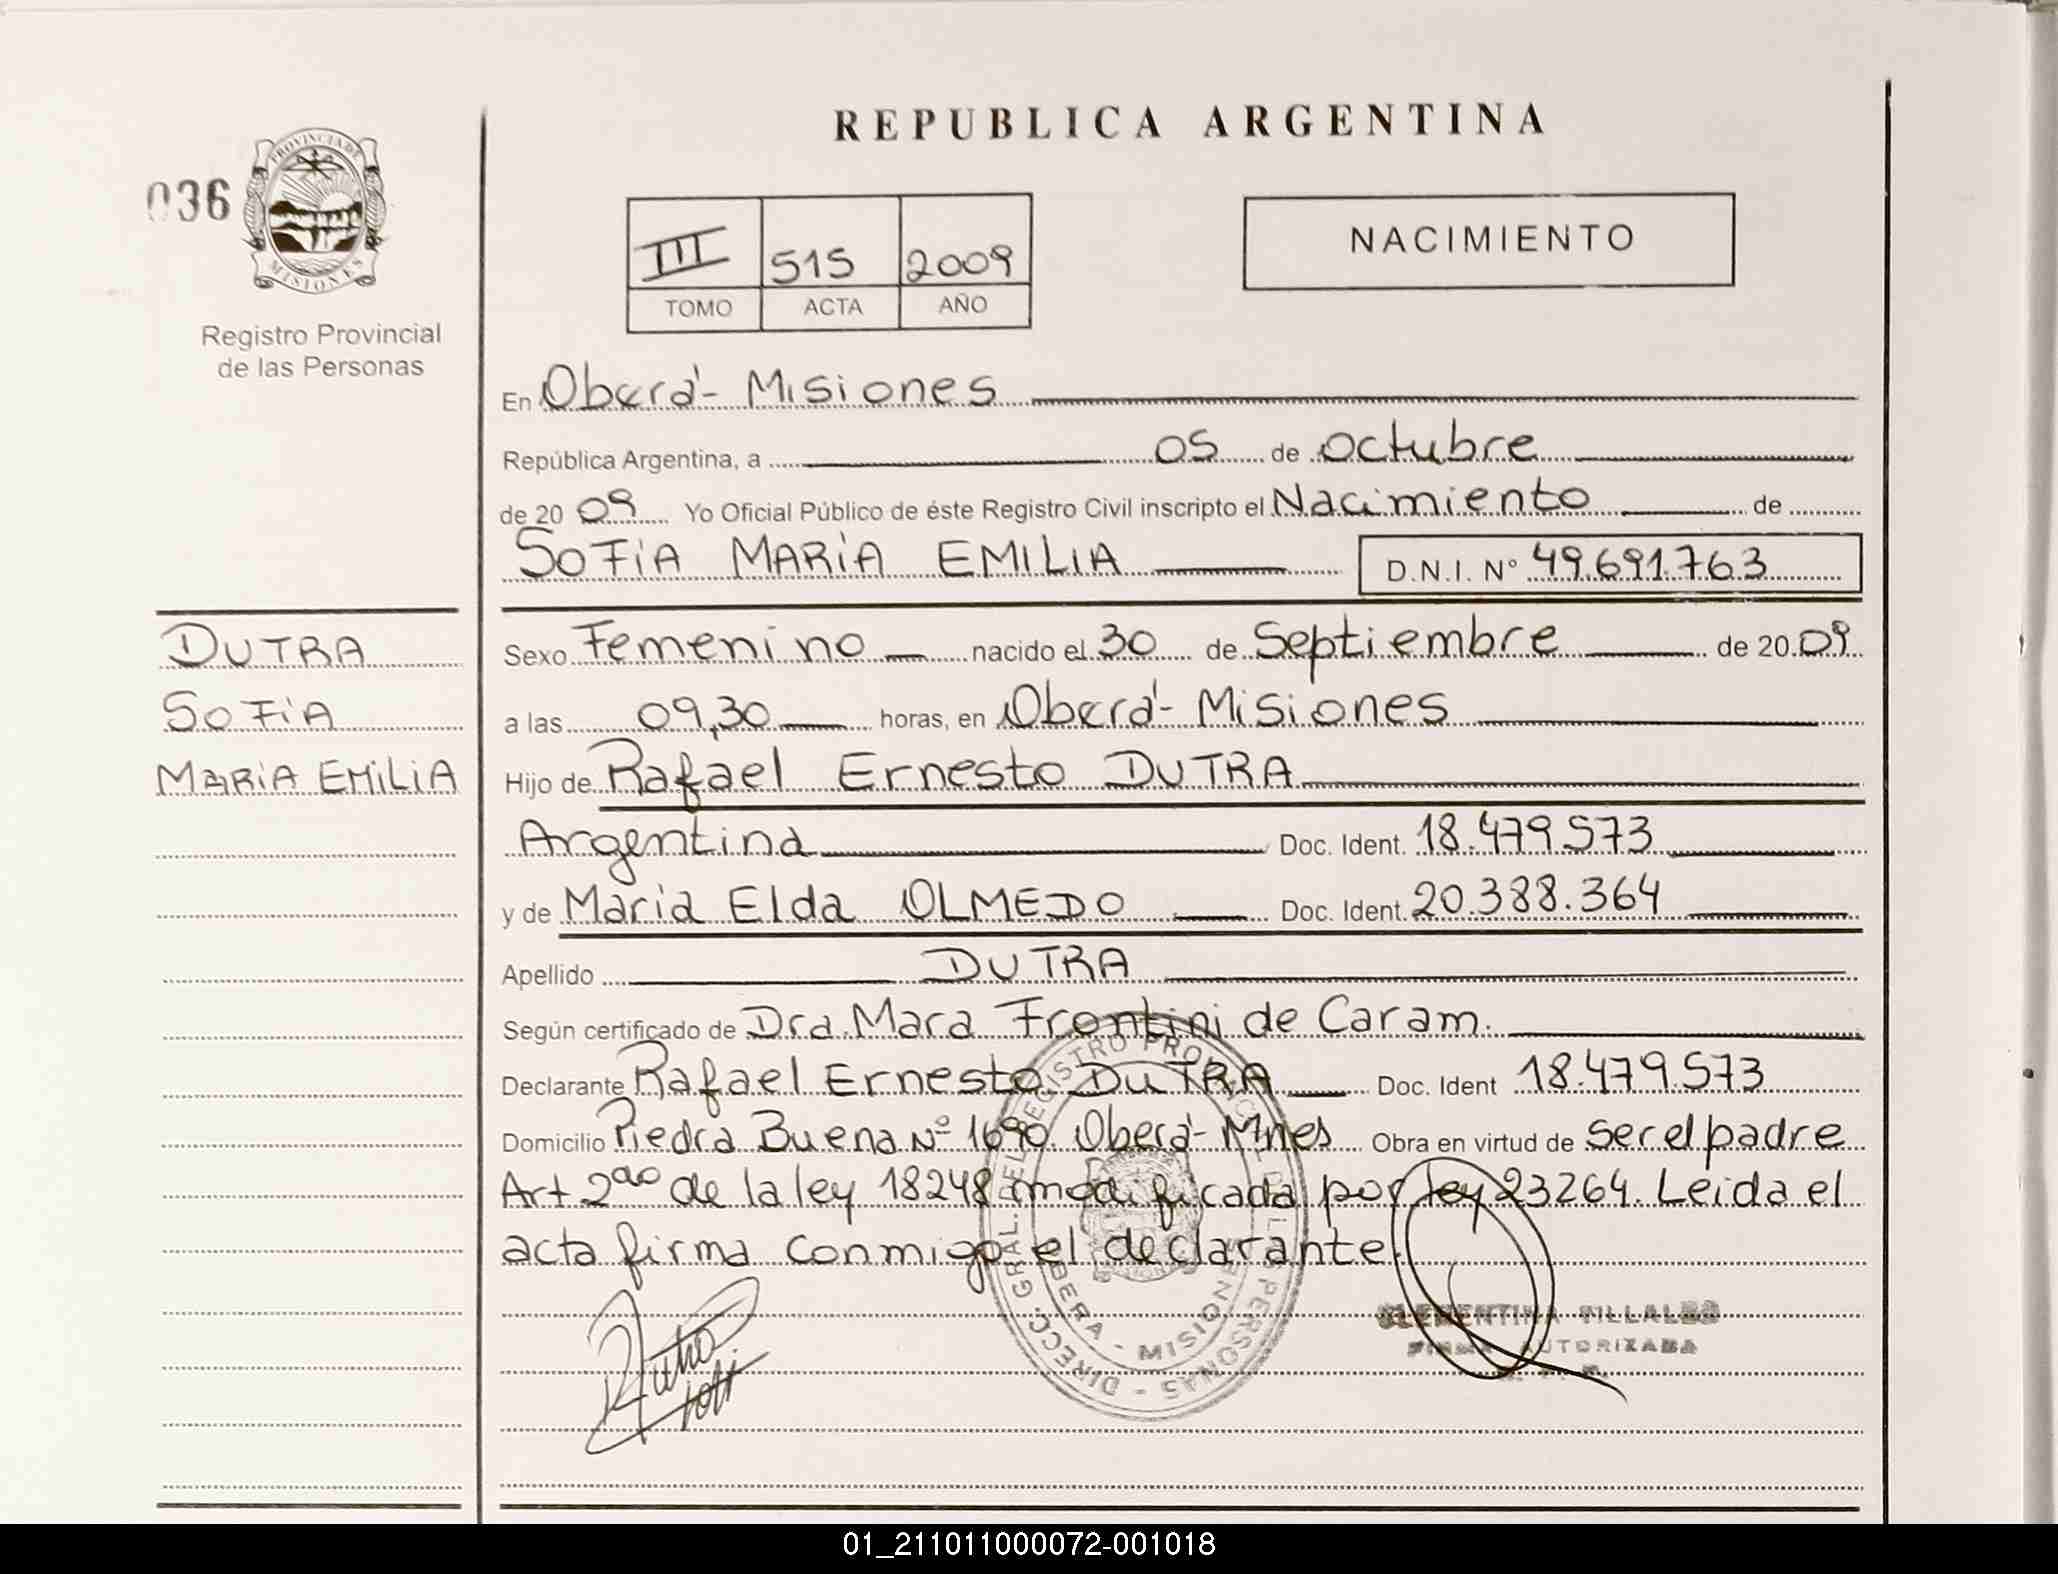 REPUBLICA ARGENTINA
036
PROVINCIA DE
MISIONES
Registro Provincial
de las Personas
III 515 2009
TOMO ACTA AÑO
NACIMIENTO
En Oberá - Misiones
República Argentina, a 05 de octubre
de 20 09 Yo Oficial Público de éste Registro Civil inscripto el Nacimiento de
SOFÍA MARÍA EMILIA D.N.I. N° 49.691.763
DUTRA
SOFÍA
MARÍA EMILIA
Sexo Femenino nacido el 30 de Septiembre de 20 09
a las 09,30 horas, en Oberá - Misiones
Hijo de Rafael Ernesto DUTRA
Argentina Doc. Ident. 18.479.573
y de Maria Elda OLMEDO Doc. Ident. 20.388.364
Apellido DUTRA
Según certificado de Dra. Mara Frontini de Caram.
Declarante Rafael Ernesto DUTRA Doc. Ident 18.479.573
Domicilio Piedra Buena Nº 1690. Oberá - Mnes Obra en virtud de ser el padre
Art 2do de la ley 18248 modificada por ley 23264. Leida el
acta firma conmigo el declarante.
DIRECC. GRAL. DEL REGISTRO PROVINCIAL DE LAS PERSONAS
OBERA - MISIONES
CLEMENTINA VILLALBO
FIRMA AUTORIZADA
01_211011000072-001018